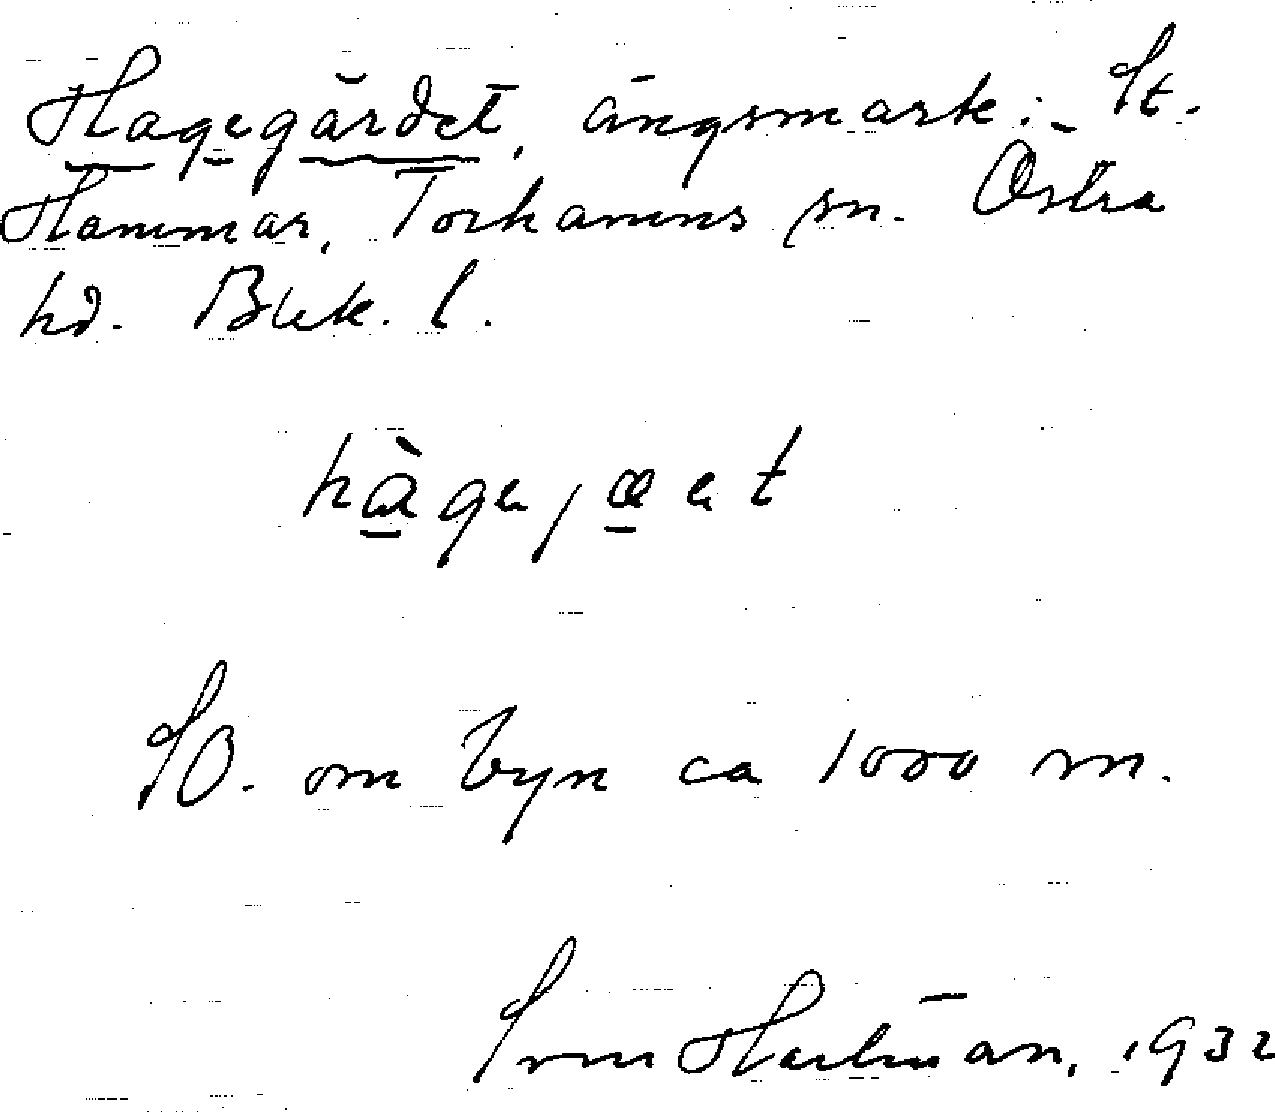 Hagegärdet, ängsmark: St.
Hammar, Torhamns sn. Östra
hd. Blek. l.
SO. om byn ca 1000 m.
Sven Hartman, 1932